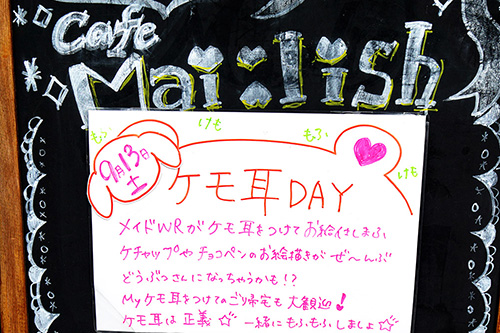 Cafe
Mai:lish
もふ けも もふ けも
9月13日
土
ケモ耳DAY
メイドWRがケモ耳をつけてお給仕しまふ
ケチャップやチョコペンのお絵描きがぜ〜んぶ
どうぶつさんになっちゃうかも!?
Myケモ耳をつけてのご帰宅も大歓迎!
ケモ耳は正義☆ 一緒にもふもふしましょ☆